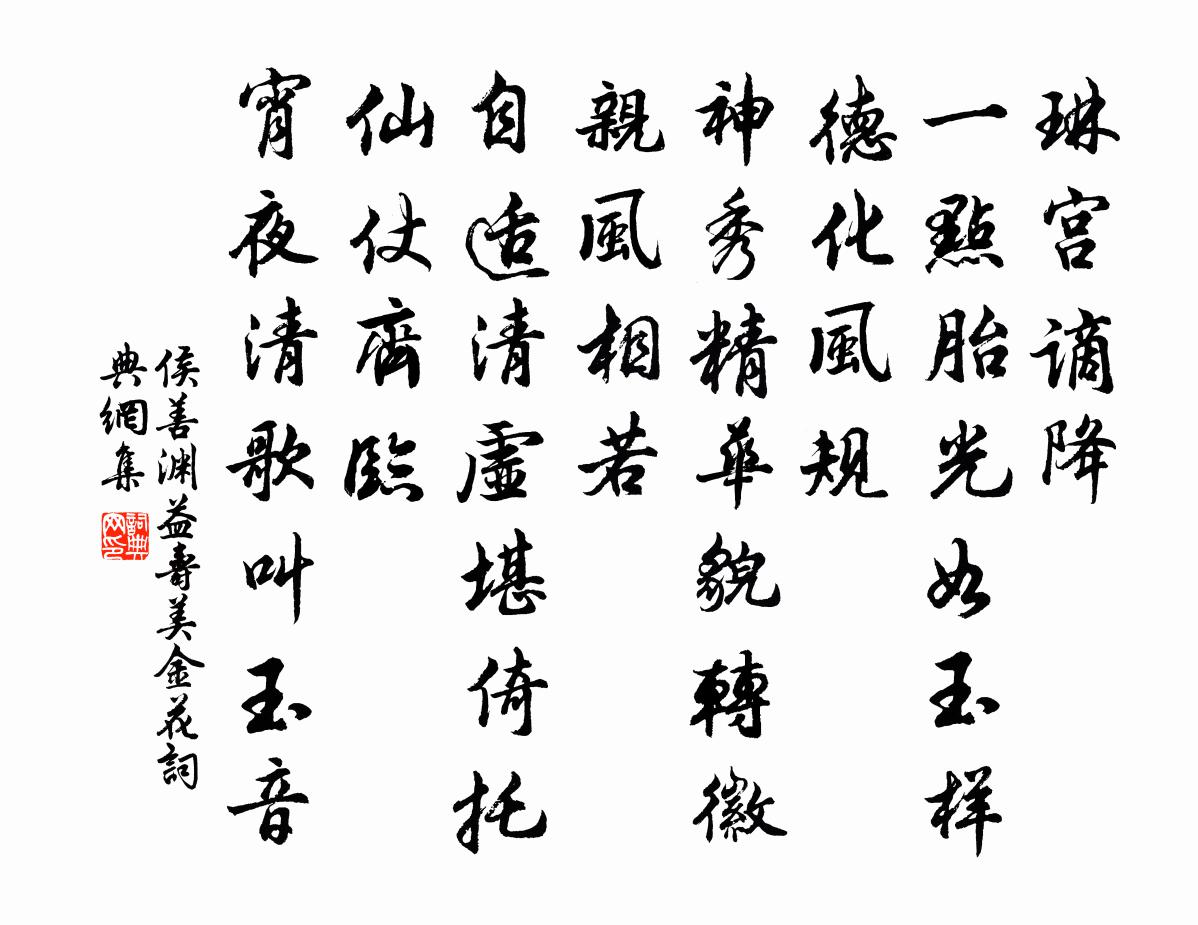 琳宫谪降
一點胎光如玉样
德化風规
神秀精華貌轉徽
親風相若
自适清虚堪倚托
仙仗齊臨
宵夜清歌叫玉音
侯善渊益壽美金花詞
典網集
詞典
网印